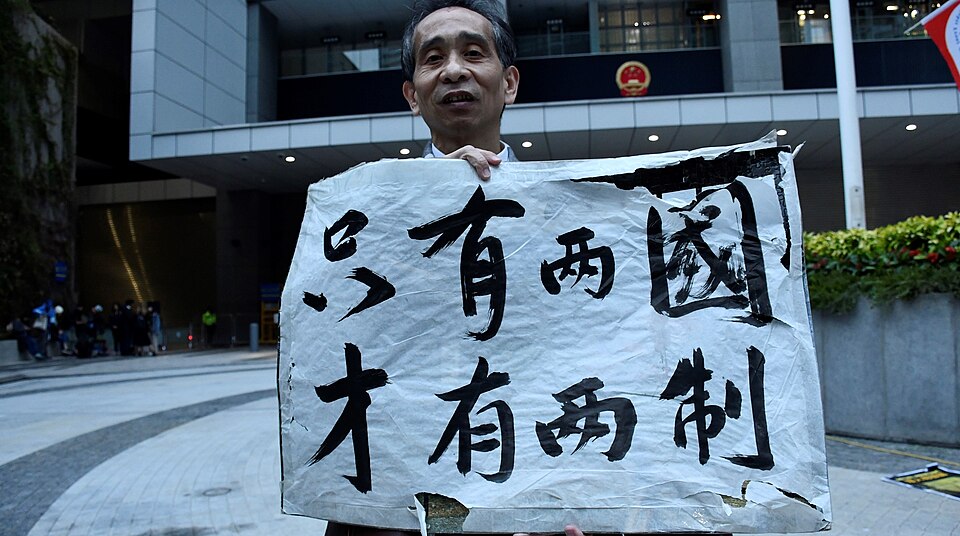 只有两國
才有两制